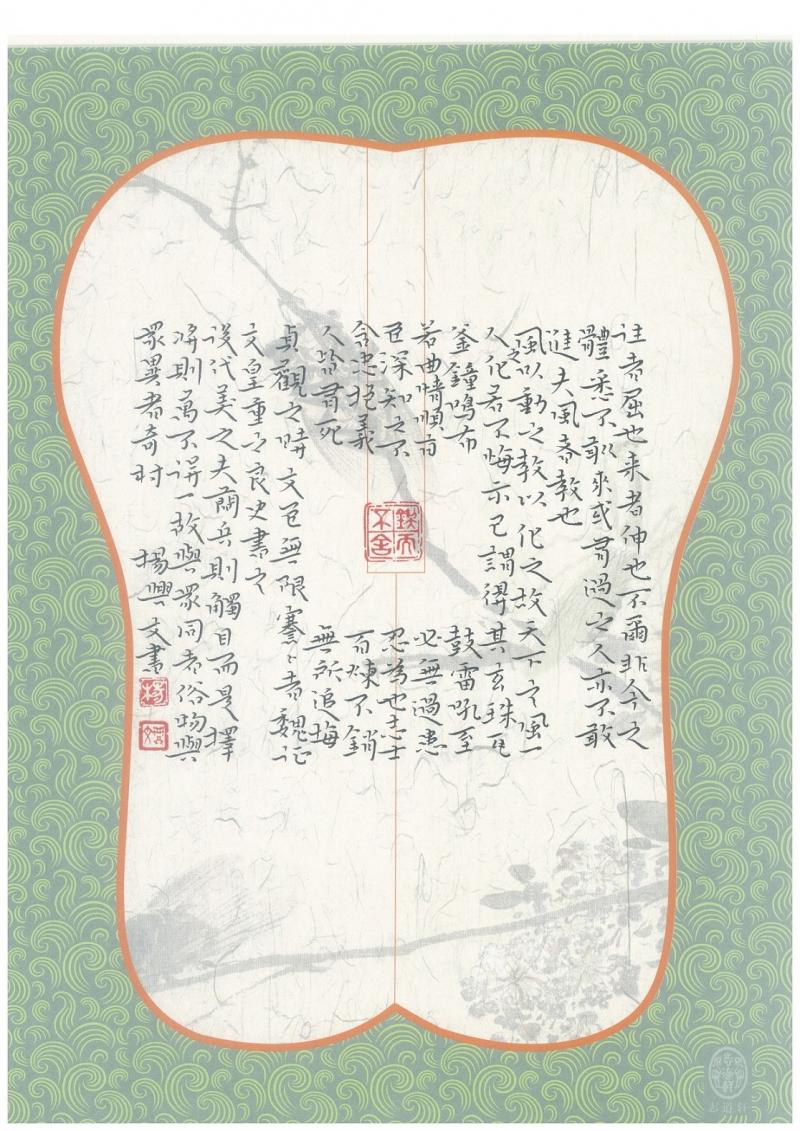 往者屈也来者伸也不爾非今之
體悉不敢來或有過之人亦不敢
進夫風者教也
風以動之教以化之故天下之風一
之
人化若不悔示已謂得其玄珠瓦
釜鐘鳴布鼓雷吼至
若曲情順方必無過患
臣深知之不忍為也志士
含忠抱義百煉不銷
人皆有死無所追悔
貞觀之時文臣無限謇謇者魏证
文皇重之良史書之
後代美之夫蘭兵則觸目而是擇
將則萬不得一故與眾同者俗物與
眾異者奇材
楊興文書
鍥而不舍
楊
志道軒